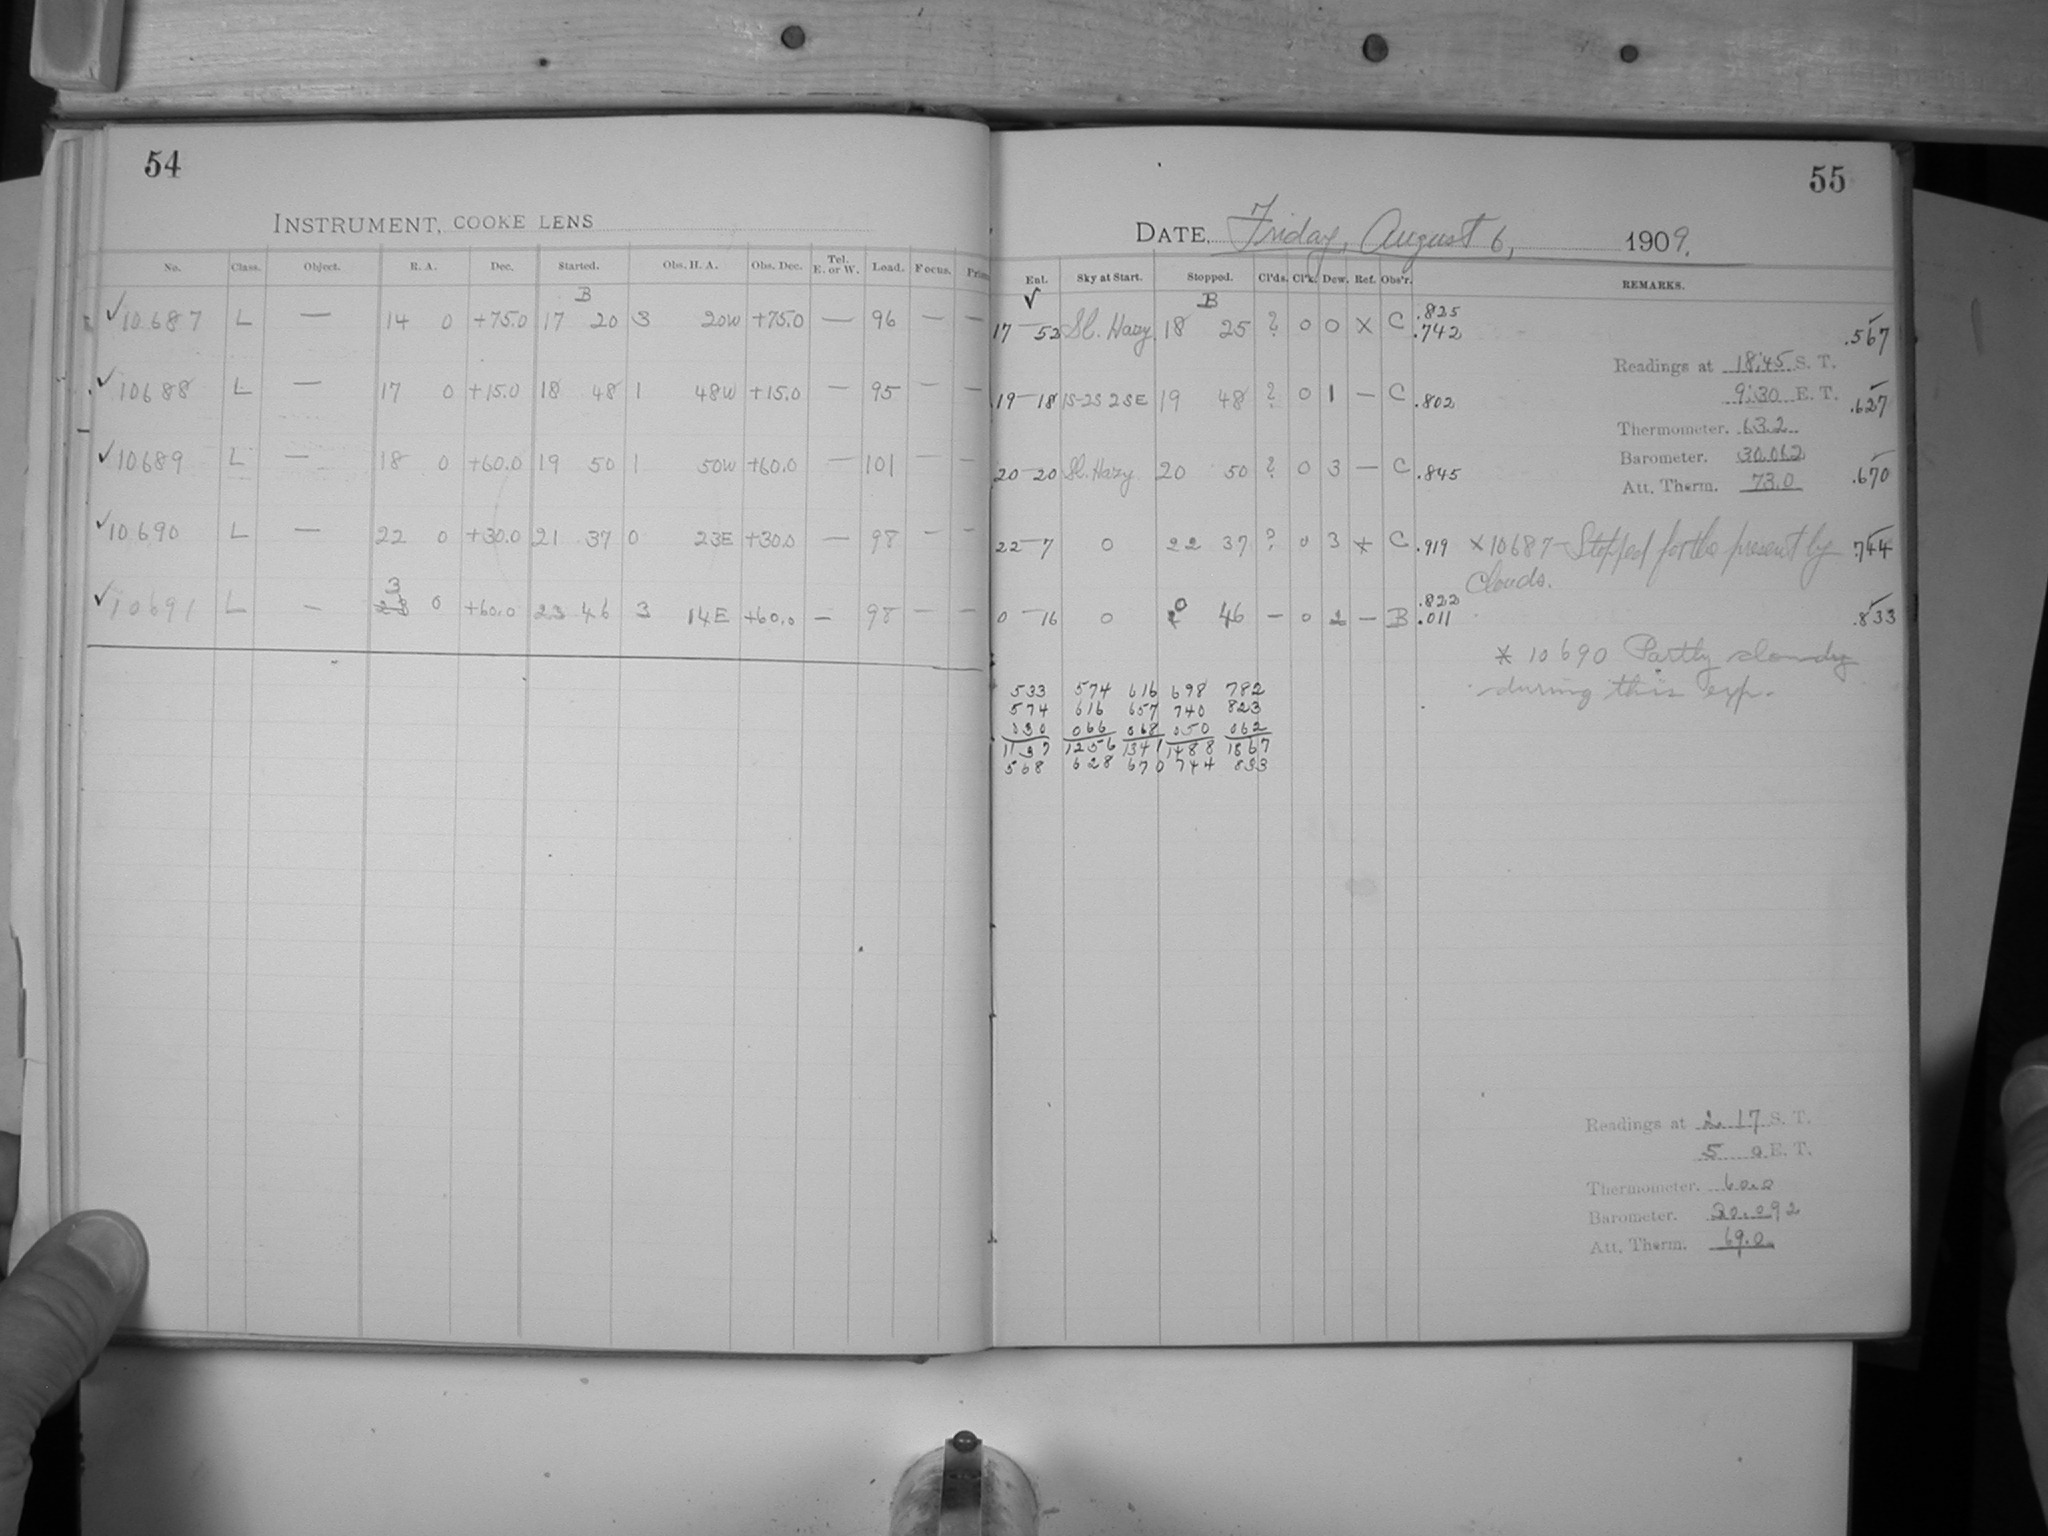 54
INSTRUMENT, COOKE LENS
No. Class. Object. R. A. Dec. Started. Obs. H. A. Obs. Dec. Tel. E. or W. Load. Focus.
B
✓10687 L — 14 0 +75.0 17 20 3 20W +75.0 — 96 — —
✓10688 L — 17 0 +15.0 18 48 1 48W +15.0 — 95 — —
✓10689 L — 18 0 +60.0 19 50 1 50W +60.0 — 101 — —
✓10690 L — 22 0 +30.0 21 37 0 23E +30.0 — 98 — —
3
✓10691 L — 0 +60.0 23 46 3 14E +60.0 — 98 — —
55
DATE, Friday, August 6, 1909.
Ent. Sky at Start. Stopped. Cl'ds. Cl'k. Dew. Ref. Obs'r. REMARKS.
✓ B
17—52 Sl. Hazy 18 25 ? 0 0 × C .825 .742 .567
Readings at 18:45 S. T.
9:30 E. T.
19—18 1S-2S 2SE 19 48 ? 0 1 — C .802 .627
Thermometer. 63.2
Barometer. 30.062
20—20 Sl. Hazy 20 50 ? 0 3 — C .845 .670
Att. Therm. 73.0
22—7 0 22 37 ? 0 3 * C .919 ×10687—Stopped for the present by 744
Clouds.
0—16 0 0 46 — 0 2 — B .822 .011 .833
* 10690 Partly cloudy
during this exp.
533 574 616 698 782
574 616 657 740 823
030 066 068 050 062
1137 1256 1341 1488 1667
568 628 670 744 833
Readings at 2 17 S. T.
5 0 E. T.
Thermometer. 60.0
Barometer. 30.092
Att. Therm. 69.0